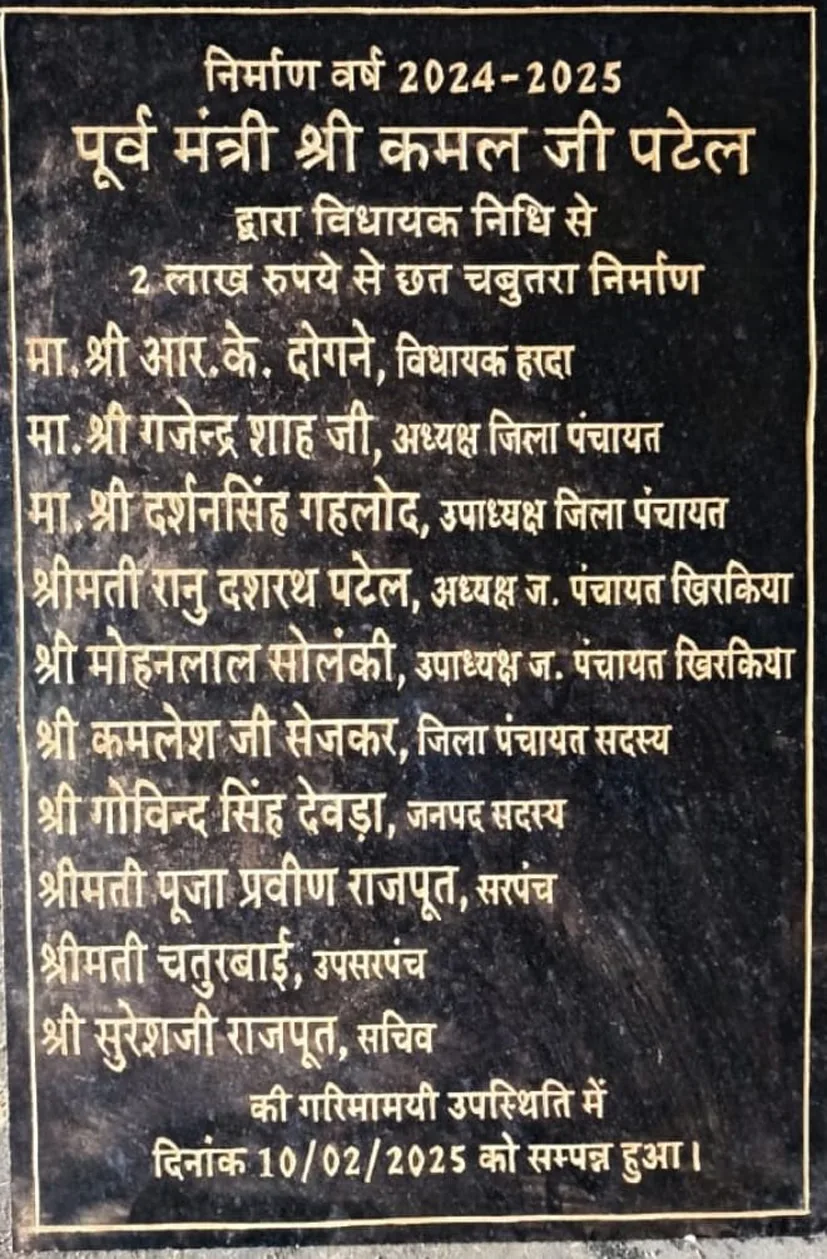 निर्माण वर्ष 2024-2025
पूर्व मंत्री श्री कमल जी पटेल
द्वारा विधायक निधि से
2 लाख रुपये से छत चबुतरा निर्माण
मा.श्री आर.के. दोगने, विधायक हरदा
मा.श्री गजेन्द्र शाह जी, अध्यक्ष जिला पंचायत
मा.श्री दर्शनसिंह गहलोद, उपाध्यक्ष जिला पंचायत
श्रीमती रानु दशरथ पटेल, अध्यक्ष ज. पंचायत खिरकिया
श्री मोहनलाल सोलंकी, उपाध्यक्ष ज. पंचायत खिरकिया
श्री कमलेश जी सेजकर, जिला पंचायत सदस्य
श्री गोविन्द सिंह देवड़ा, जनपद सदस्य
श्रीमती पूजा प्रवीण राजपूत, सरपंच
श्रीमती चतुरबाई, उपसरपंच
श्री सुरेशजी राजपूत, सचिव
की गरिमामयी उपस्थिति में
दिनांक 10/02/2025 को सम्पन्न हुआ।